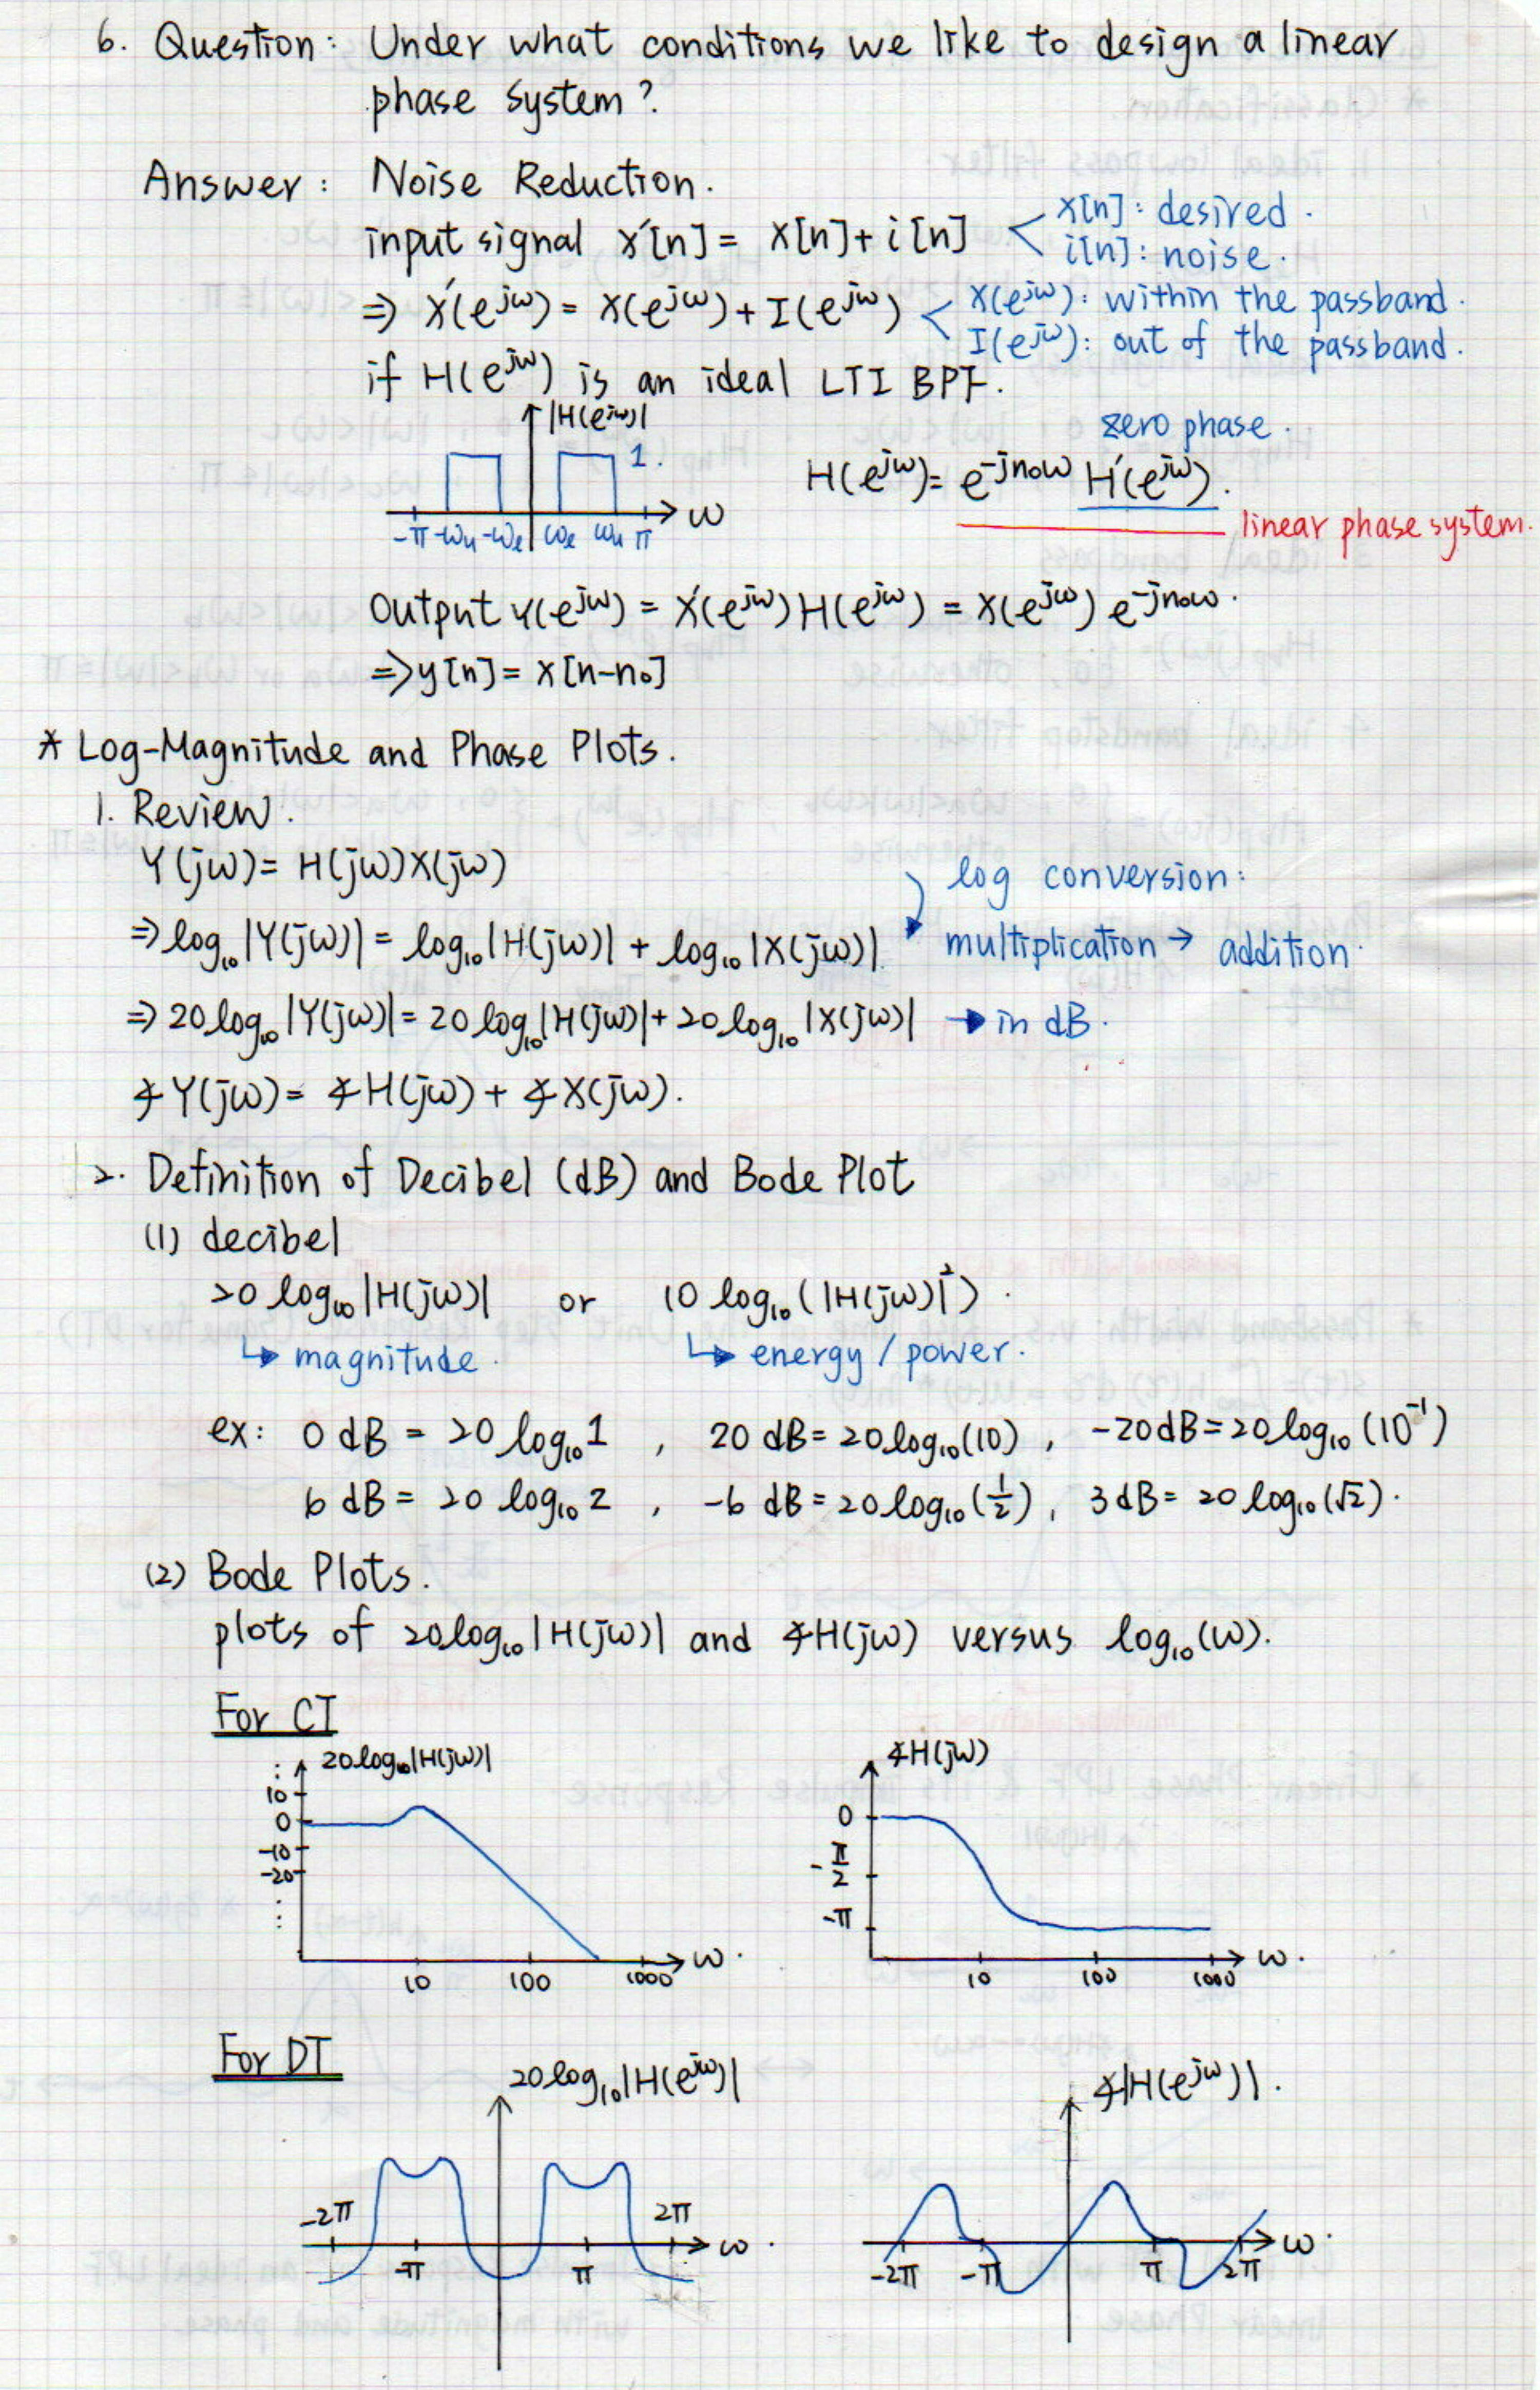 6. Question: Under what conditions we like to design a linear
phase system?
Answer: Noise Reduction.
input signal x'[n] = x[n] + i[n]
x[n]: desired.
i[n]: noise.
⇒ X'(e^jω) = X(e^jω) + I(e^jω)
X(e^jω): within the passband.
I(e^jω): out of the passband.
if H(e^jω) is an ideal LTI BPF.
|H(e^jω)|
1.
-π -ωu -ωl ωl ωu π ω
zero phase.
H(e^jω) = e^-jn₀ω H'(e^jω).
linear phase system.
Output Y(e^jω) = X'(e^jω) H(e^jω) = X(e^jω) e^-jn₀ω.
⇒ y[n] = x[n-n₀]
* Log-Magnitude and Phase Plots.
1. Review.
Y(jω) = H(jω)X(jω)
log conversion:
⇒ log₁₀|Y(jω)| = log₁₀|H(jω)| + log₁₀|X(jω)|
multiplication → addition.
⇒ 20log₁₀|Y(jω)| = 20log₁₀|H(jω)| + 20log₁₀|X(jω)| → in dB.
∡Y(jω) = ∡H(jω) + ∡X(jω).
2. Definition of Decibel (dB) and Bode Plot
(1) decibel
20 log₁₀|H(jω)| or 10 log₁₀(|H(jω)|²).
↳ magnitude. ↳ energy / power.
ex: 0 dB = 20 log₁₀1 , 20 dB = 20log₁₀(10) , -20dB = 20log₁₀(10⁻¹)
6 dB = 20 log₁₀2 , -6 dB = 20log₁₀(1/2) , 3dB = 20log₁₀(√2).
(2) Bode Plots.
plots of 20log₁₀|H(jω)| and ∡H(jω) versus log₁₀(ω).
For CT
20log₁₀|H(jω)|
10
0
-10
-20
10 100 1000 ω.
∡H(jω)
0
-π/2
-π
10 100 1000 ω.
For DT
20log₁₀|H(e^jω)|
-2π -π π 2π ω.
∡|H(e^jω)|.
-2π -π π 2π ω.